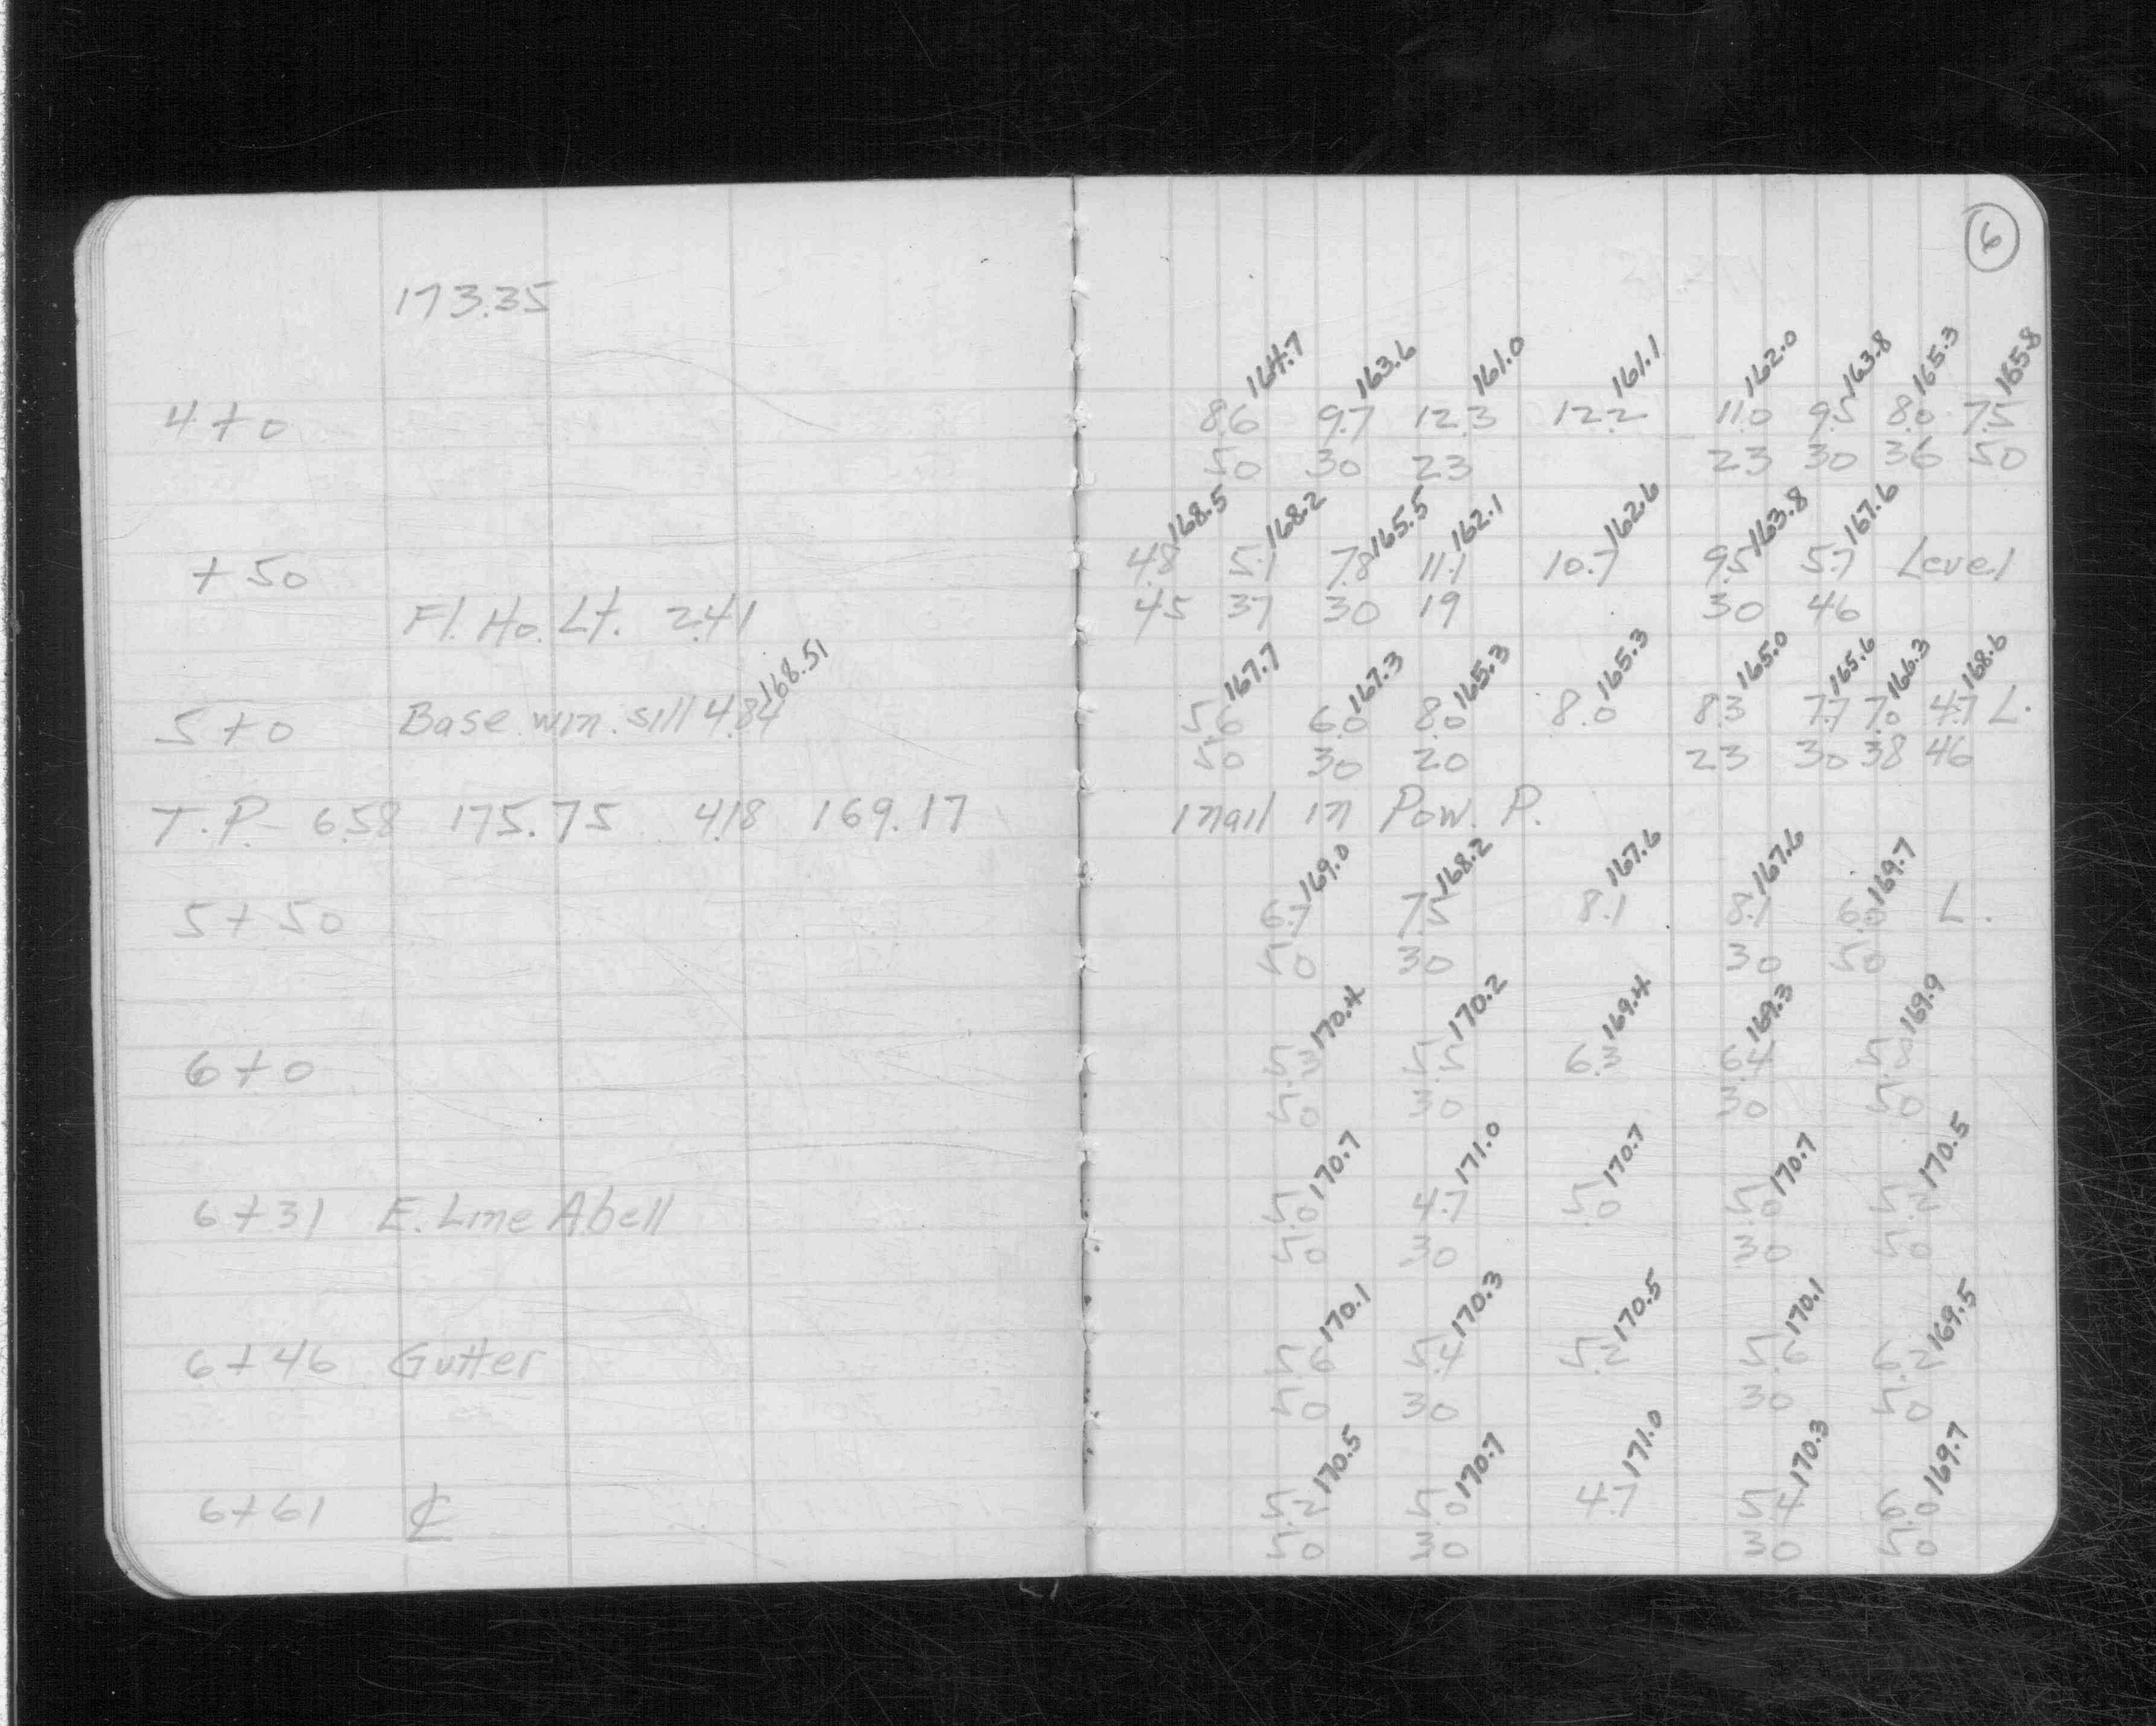 6
173.35
164.7 163.6 161.0 161.1 162.0 163.8 165.3 165.8
4+0 8.6 9.7 12.3 12.2 11.0 9.5 8.0 7.5
50 30 23 23 30 36 50
168.5 168.2 165.5 162.1 162.6 163.8 167.6
+50 4.8 5.1 7.8 11.1 10.7 9.5 5.7 Level
Fl. Ho. Lt. 2.41 45 37 30 19 30 46
168.51 167.7 167.3 165.3 165.3 165.0 165.6 166.3 168.6
5+0 Base win. sill 4.84 5.6 6.0 8.0 8.0 8.3 7.7 7.0 4.7 L.
50 30 20 23 30 38 46
T.P. 6.58 175.75 4.18 169.17 nail in Pow. P.
169.0 168.2 167.6 167.6 169.7
5+50 6.7 7.5 8.1 8.1 6.0 L.
50 30 30 50
170.4 170.2 169.4 169.3 169.9
6+0 5.3 5.5 6.3 6.4 5.8
50 30 30 50
170.7 171.0 170.7 170.7 170.5
6+31 E. Line Abell 5.0 4.7 5.0 5.0 5.2
50 30 30 50
170.1 170.3 170.5 170.1 169.5
6+46 Gutter 5.6 5.4 5.2 5.6 6.2
50 30 30 50
170.5 170.7 171.0 170.3 169.7
6+61 ℄ 5.2 5.0 4.7 5.4 6.0
50 30 30 50